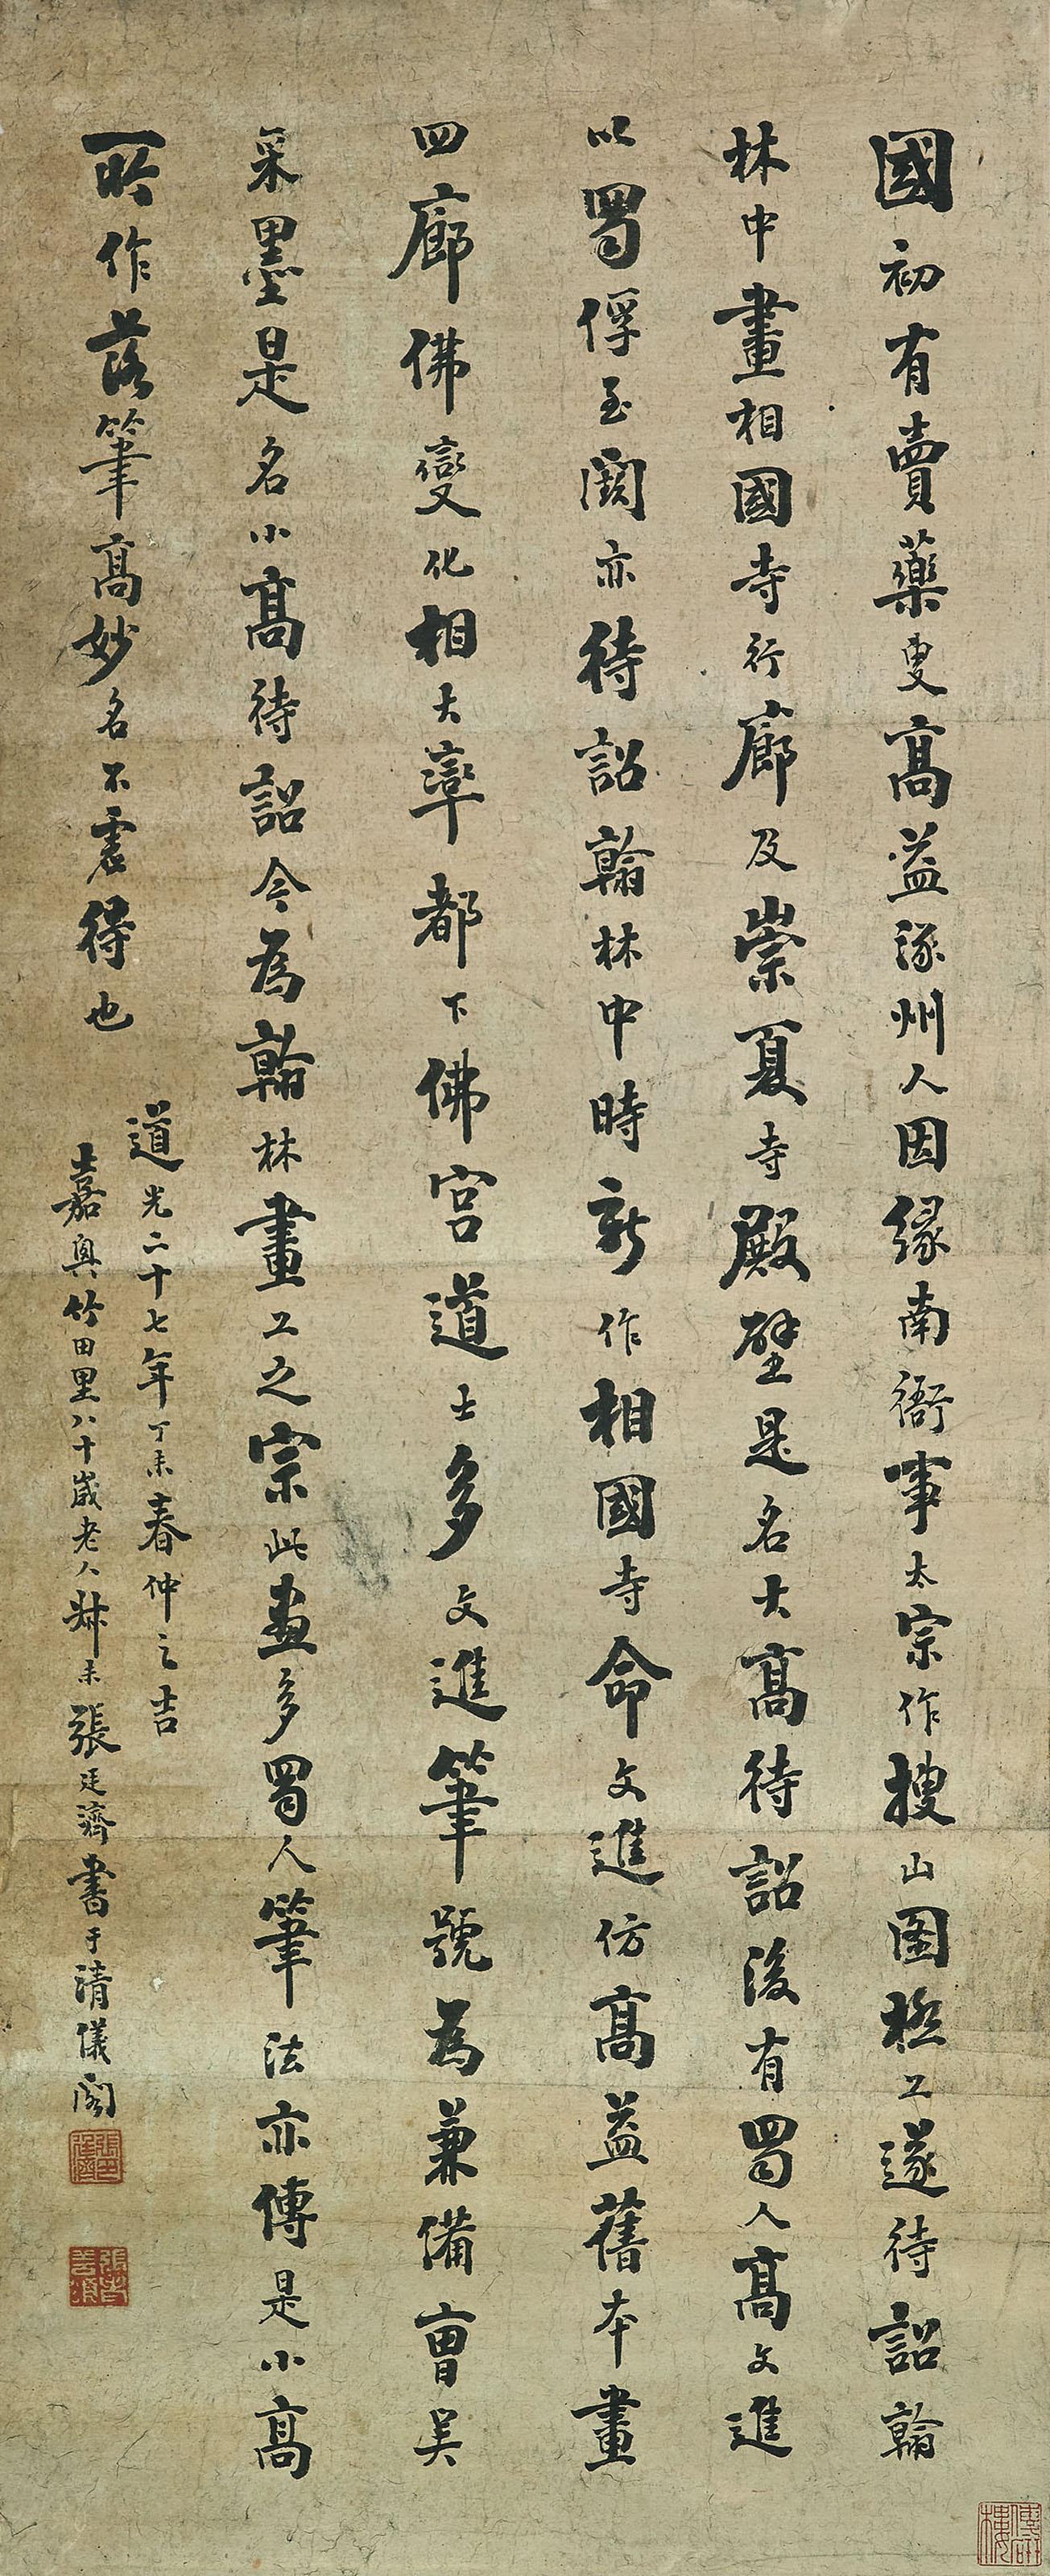 國初有賣藥叟高益涿州人因緣南衙事太宗作搜山圖極工遂待詔翰
林中畫相國寺行廊及崇夏寺殿壁是名大高待詔後有蜀人高文進
以蜀俘至闕亦待詔翰林中時新作相國寺命文進仿高益舊本畫
四廊佛變化相大率都下佛宮道士多文進筆號為兼備曹吴
采墨是名小高待詔今為翰林畫工之宗此畫多蜀人筆法亦傳是小高
所作落筆高妙名不虛得也
道光二十七年丁未春仲之吉
嘉興竹田里八十歲老人叔未張廷濟書于清儀閣
張廷濟印